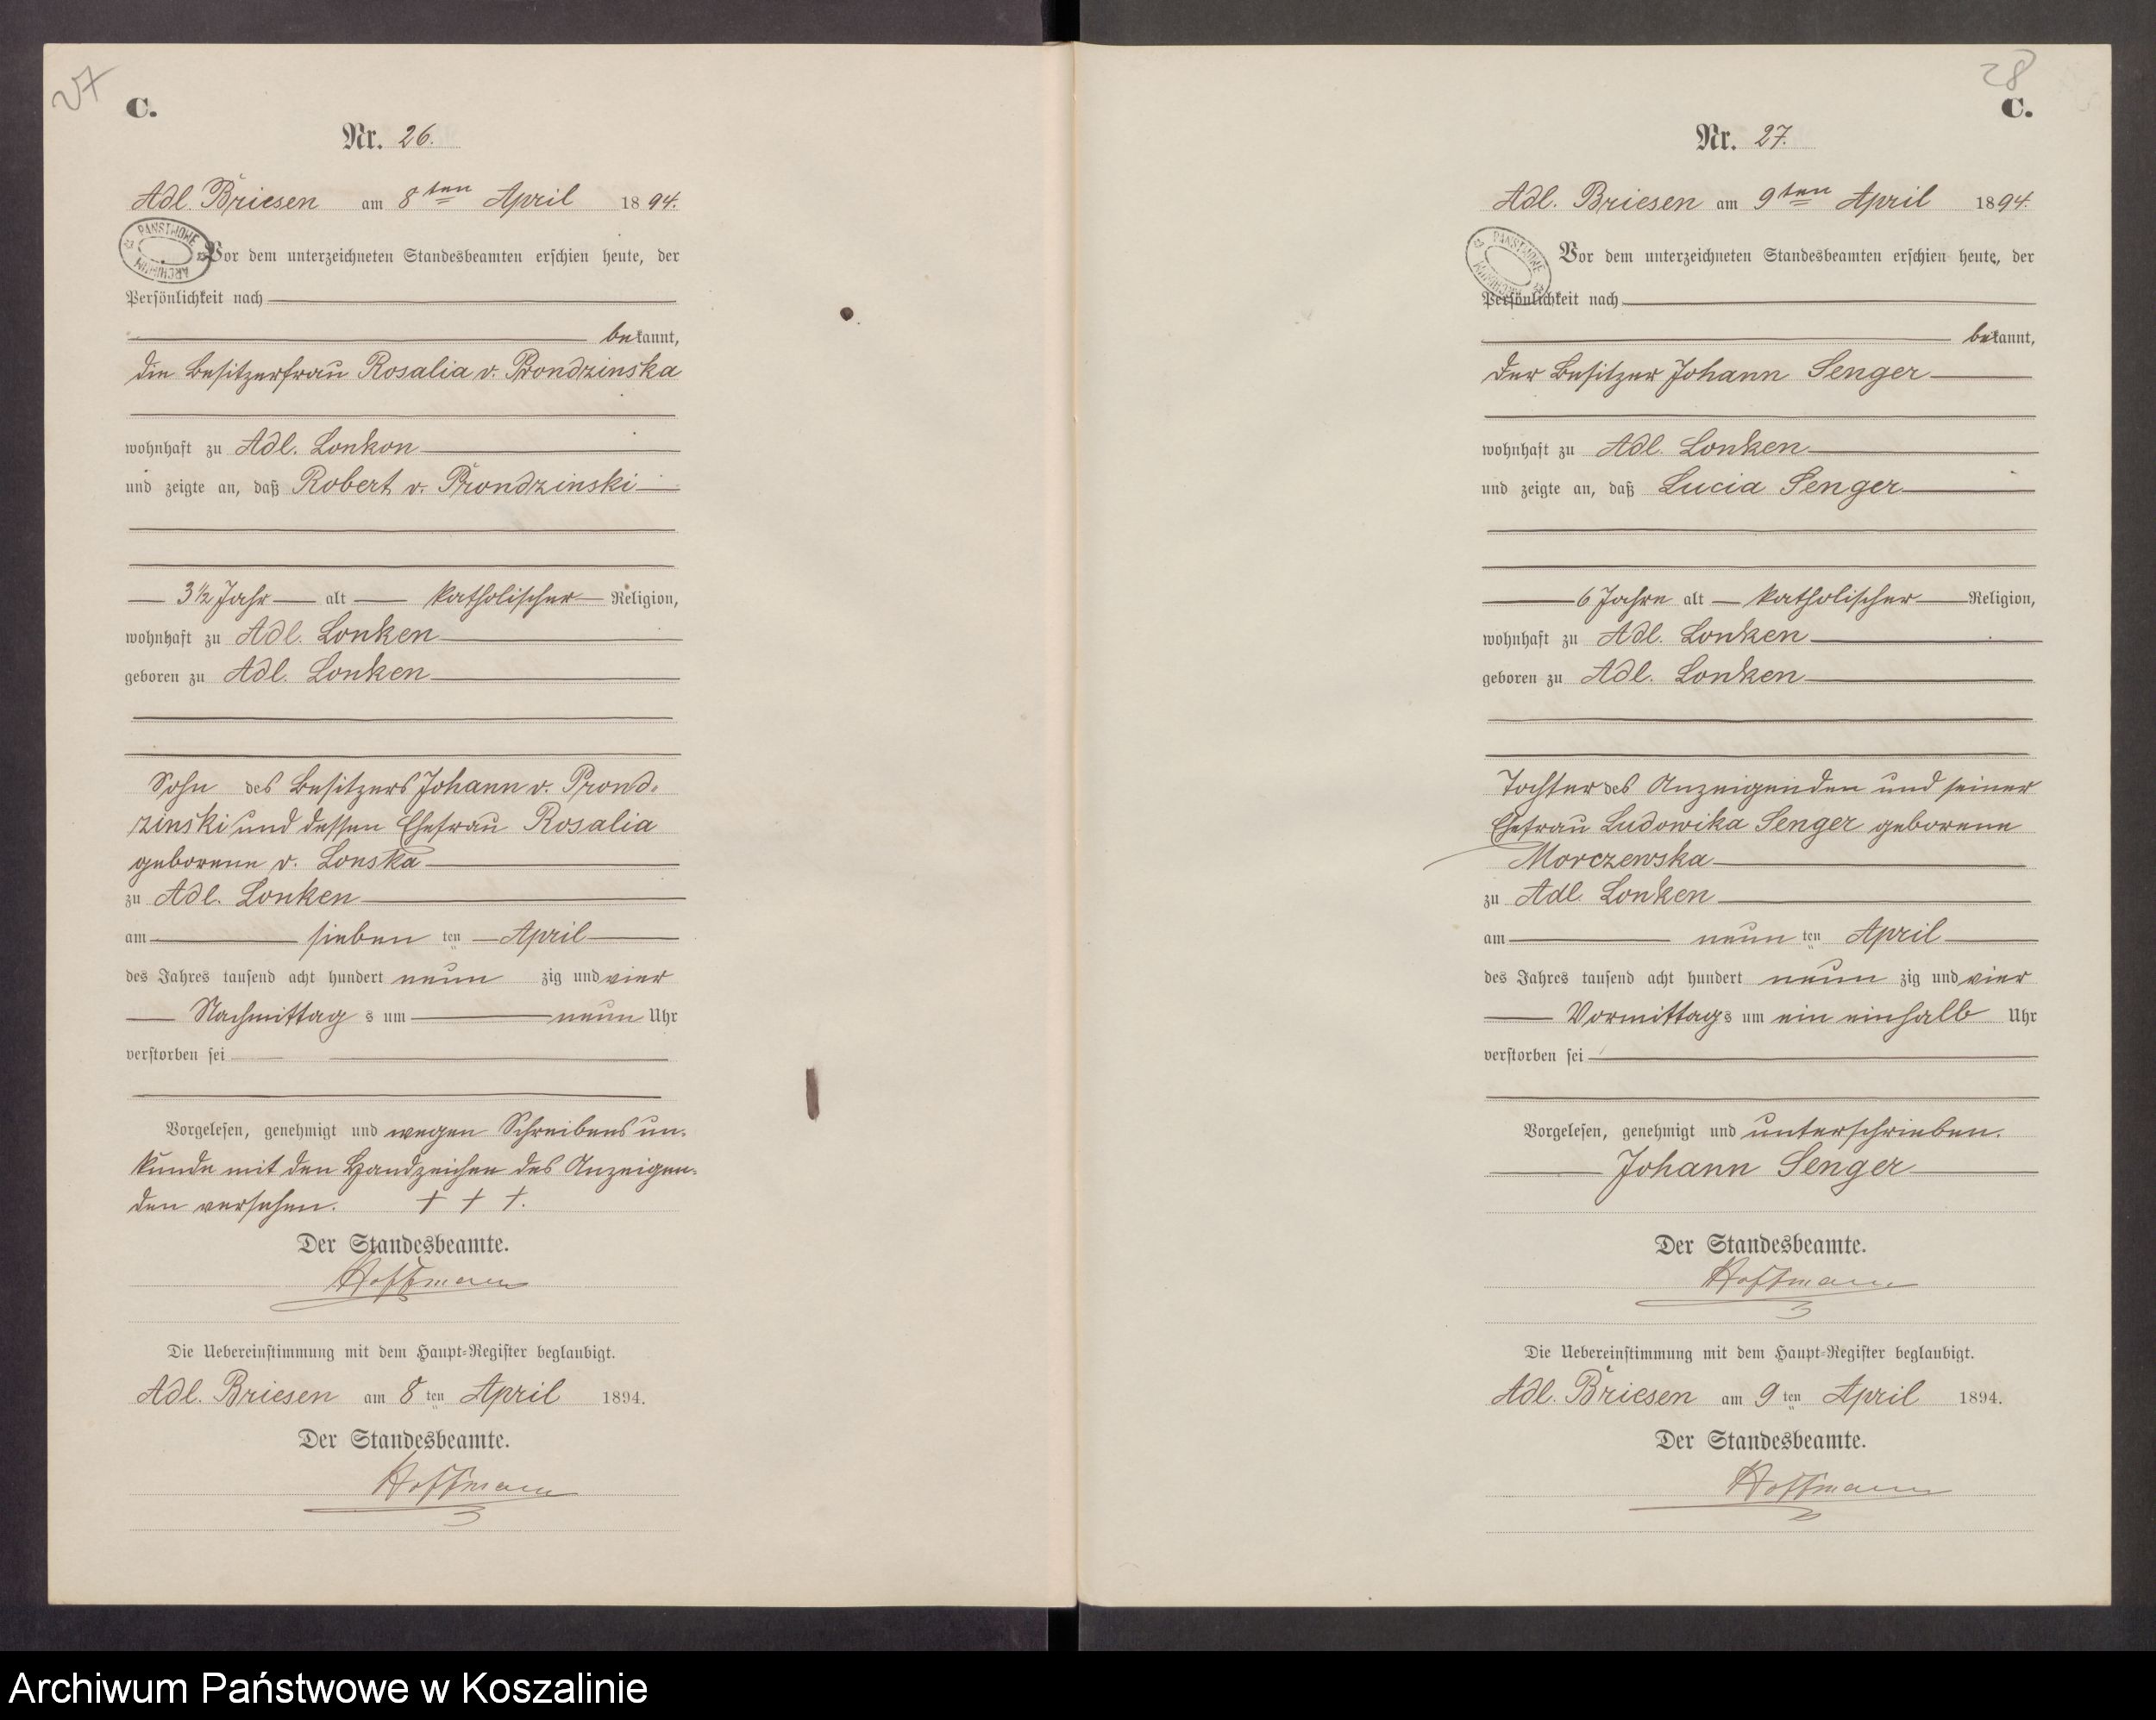 27
C.
Nr. 26.
Adl. Briesen am 8ten April 1894.
PAŃSTWOWE ARCHIWUM
Vor dem unterzeichneten Standesbeamten erschien heute, der
Persönlichkeit nach
bekannt,
die Besitzerfrau Rosalia v. Prondzinska
wohnhaft zu Adl. Lonken
und zeigte an, daß Robert v. Prondzinski
3½ Jahr alt katholischer Religion,
wohnhaft zu Adl. Lonken
geboren zu Adl. Lonken
Sohn des Besitzers Johann v. Prond-
zinski und dessen Ehefrau Rosalia
geborene v. Lonska
zu Adl. Lonken
am sieben ten April
des Jahres tausend acht hundert neun zig und vier
Nachmittag s um neun Uhr
verstorben sei
Vorgelesen, genehmigt und wegen Schreibensun-
kunde mit den Handzeichen des Anzeigen-
den versehen. + + +.
Der Standesbeamte.
Hoffmann
Die Uebereinstimmung mit dem Haupt-Register beglaubigt.
Adl. Briesen am 8 ten April 1894.
Der Standesbeamte.
Hoffmann
28
C.
Nr. 27.
Adl. Briesen am 9ten April 1894.
PAŃSTWOWE ARCHIWUM
Vor dem unterzeichneten Standesbeamten erschien heute, der
Persönlichkeit nach
bekannt,
der Besitzer Johann Senger
wohnhaft zu Adl. Lonken
und zeigte an, daß Lucia Senger
6 Jahre alt katholischer Religion,
wohnhaft zu Adl. Lonken
geboren zu Adl. Lonken
Tochter des Anzeigenden und seiner
Ehefrau Ludowika Senger geborene
Morczewska
zu Adl. Lonken
am neun ten April
des Jahres tausend acht hundert neun zig und vier
Vormittags um ein einhalb Uhr
verstorben sei
Vorgelesen, genehmigt und unterschrieben.
Johann Senger
Der Standesbeamte.
Hoffmann
Die Uebereinstimmung mit dem Haupt-Register beglaubigt.
Adl. Briesen am 9 ten April 1894.
Der Standesbeamte.
Hoffmann
Archiwum Państwowe w Koszalinie